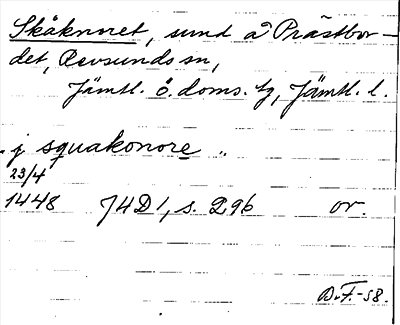 Skåknoret, sund a Prästbor-
det, Revsunds sn,
Jämtl. ö. doms. tg, Jämtl. l.
j squakonore
23/4
1448 J4D1, s. 296 or.
D.F.-58.